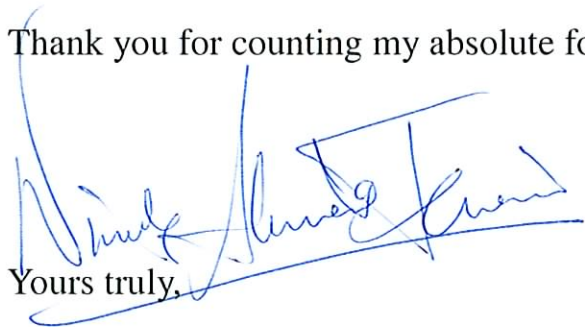 Thank you for counting my absolute fo
Yours truly,